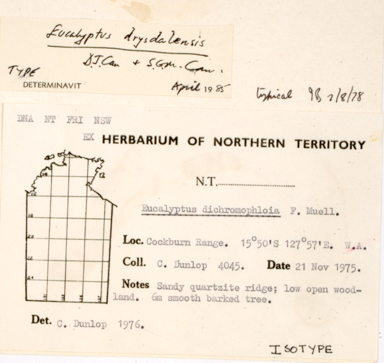 Eucalyptus drysdalensis
D.J.Carr + S.G.M. Carr
TYPE
April 1985
DETERMINAVIT
typical 7/8/78
DNA NT FRI NEW
EX HERBARIUM OF NORTHERN TERRITORY
N.T.
Eucalyptus dichromophloia F. Muell.
Loc. Cockburn Range. 15°50'S 127°57'E. W.A.
Coll. C. Dunlop 4045. Date 21 Nov 1975.
Notes Sandy quartzite ridge; low open wood-
land. 6m smooth barked tree.
Det. C. Dunlop 1976.
ISOTYPE